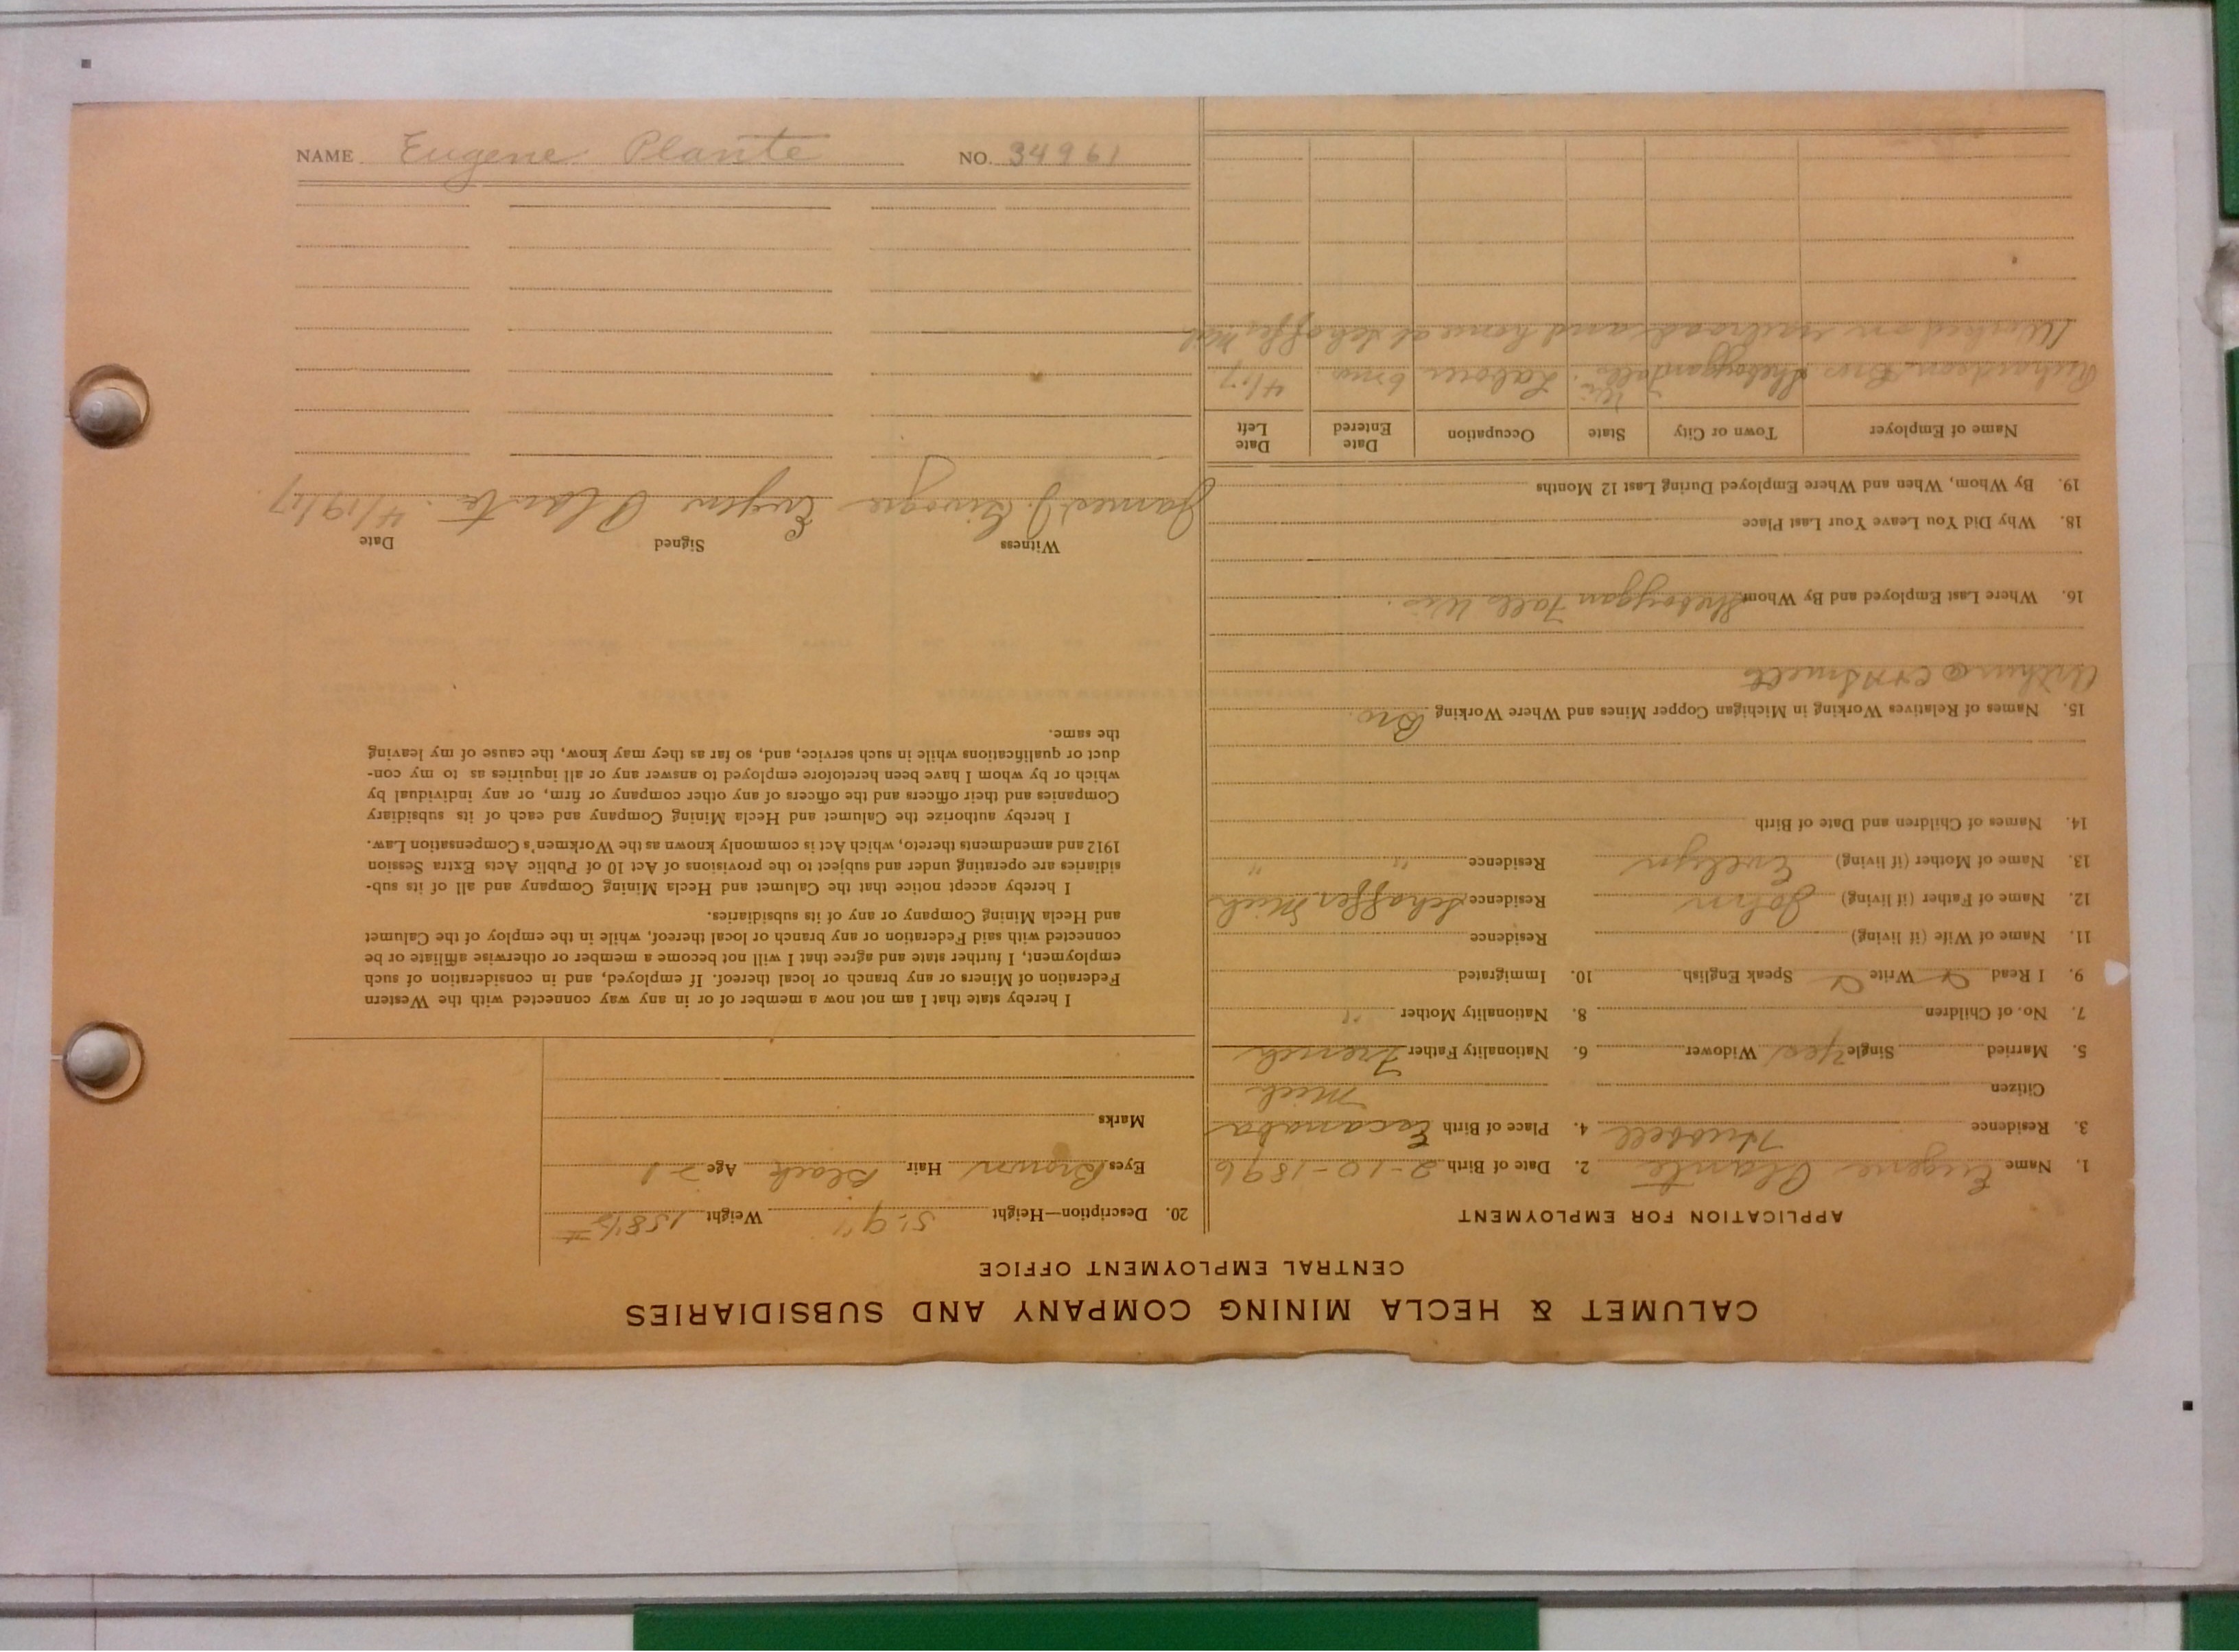 NAME Eugene Plante NO. 34961
CALUMET & HECLA MINING COMPANY AND SUBSIDIARIES
CENTRAL EMPLOYMENT OFFICE
APPLICATION FOR EMPLOYMENT
1. Name Eugene Plante 2. Date of Birth 2-10-1896
3. Residence Hubbell 4. Place of Birth Escanaba
Citizen Mich
5. Married Single Yes Widower 6. Nationality Father French
7. No. of Children 8. Nationality Mother "
9. I Read Write Speak English 10. Immigrated
11. Name of Wife (if living) Residence
12. Name of Father (if living) John Residence Schaffer Mich
13. Name of Mother (if living) Evelyn Residence " "
14. Names of Children and Date of Birth
15. Names of Relatives Working in Michigan Copper Mines and Where Working Bro.
Arthur @ C&H Smelt
16. Where Last Employed and By Whom Sheboygan Falls Wis.
18. Why Did You Leave Your Last Place
19. By Whom, When and Where Employed During Last 12 Months
Name of Employer Town or City State Occupation Date Entered Date Left
Richardson Bros Sheboygan Falls Wis. Laborer 6 mo. 4/17
Worked on railroad and home at Schaffer Mich
20. Description—Height 5'.9" Weight 158½ #
Eyes Brown Hair Black Age 21
Marks
I hereby state that I am not now a member of or in any way connected with the Western
Federation of Miners or any branch or local thereof. If employed, and in consideration of such
employment, I further state and agree that I will not become a member or otherwise affiliate or be
connected with said Federation or any branch or local thereof, while in the employ of the Calumet
and Hecla Mining Company or any of its subsidiaries.
I hereby accept notice that the Calumet and Hecla Mining Company and all of its sub-
sidiaries are operating under and subject to the provisions of Act 10 of Public Acts Extra Session
1912 and amendments thereto, which Act is commonly known as the Workmen's Compensation Law.
I hereby authorize the Calumet and Hecla Mining Company and each of its subsidiary
Companies and their officers and the officers of any other company or firm, or any individual by
which or by whom I have been heretofore employed to answer any or all inquiries as to my con-
duct or qualifications while in such service, and, so far as they may know, the cause of my leaving
the same.
Witness Signed Date
James J. Eugen Plante. 4/19/17